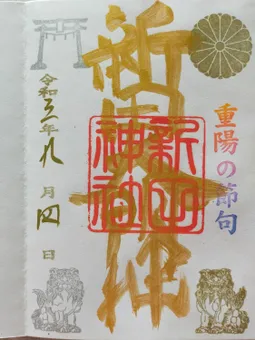 重陽の節句
新田大神
新田
神社
令和三年九月四日